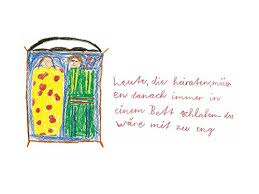 Leute, die heiraten, müss
en danach immer in
einem Bett schlafen - das
wäre mir zu eng